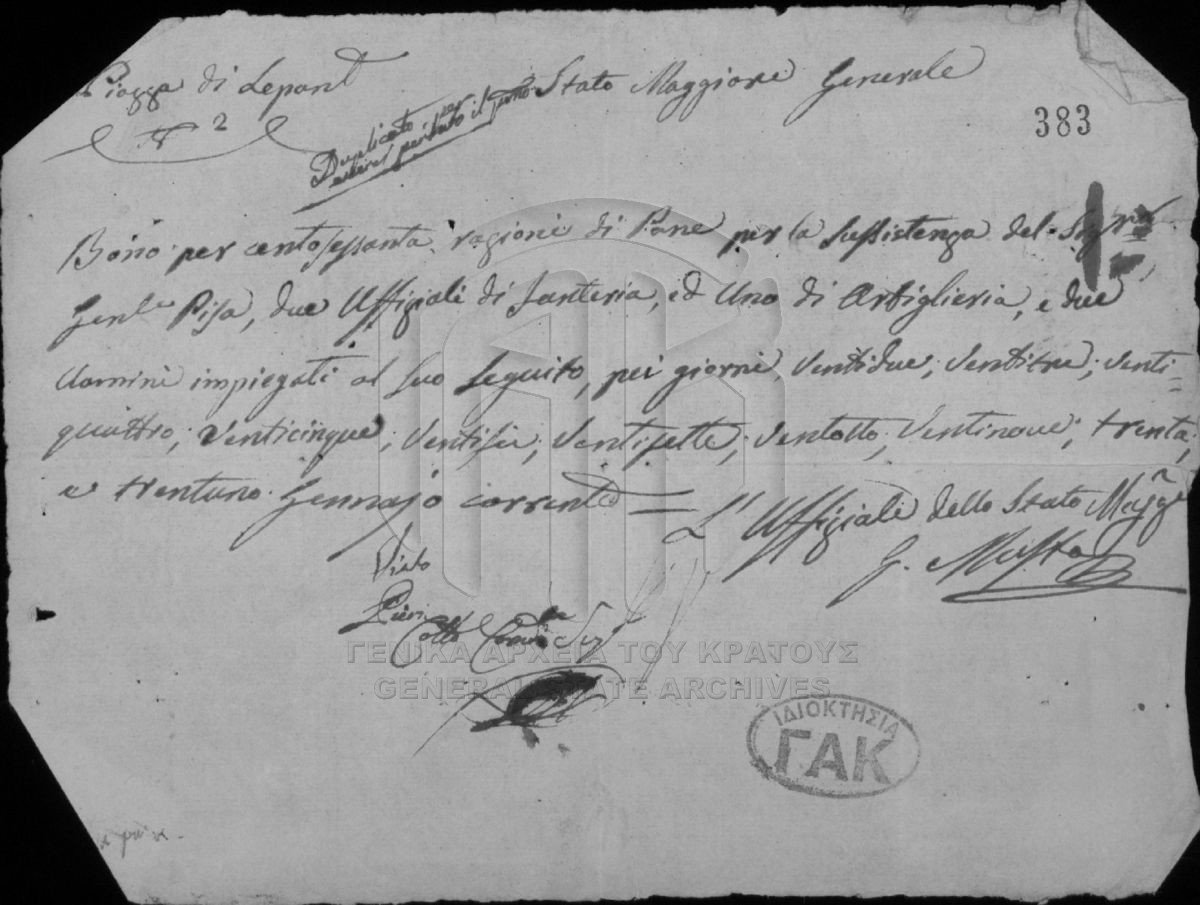 Piazza di Lepant
N 2
Duplicato per
esserci perduto il primo
Stato Maggiore Generale
383
Bono per centosessanta razioni di Pane per la sussistenza del Sigr
Genle Pisa, due Uffiziali di Fanteria, ed Uno di Artiglieria, e due
Uomini impiegati al suo seguito, pei giorni, ventidue; ventitre; venti=
quattro; venticinque; ventisei; ventisette; ventotto; ventinove; trenta;
e trentuno Gennajo corrente =
L'Uffiziale dello Stato Maggre
G.
Visto
Pieri
ΓΕΝΙΚΑ ΑΡΧΕΙΑ ΤΟΥ ΚΡΑΤΟΥΣ
GENERAL STATE ARCHIVES
ΙΔΙΟΚΤΗΣΙΑ
ΓΑΚ